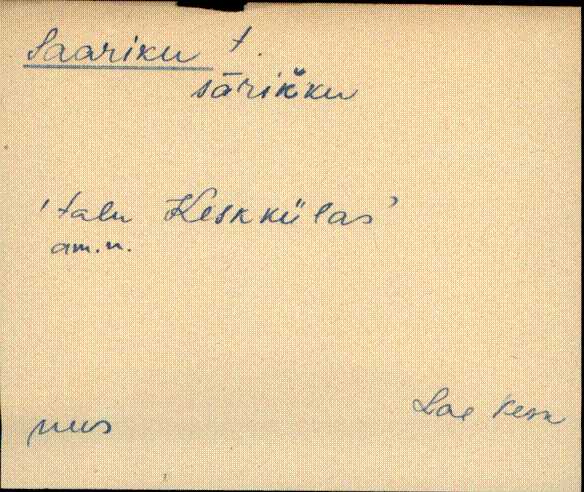 Saariku t.
sārik̆ku
'talu Keskkülas'
am.n.
Lae Kesk